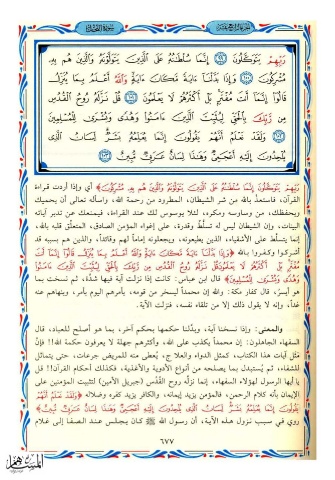 رَبِّهِمْ يَتَوَكَّلُونَ ۝ إِنَّمَا سُلْطَٰنُهُۥ عَلَى ٱلَّذِينَ يَتَوَلَّوْنَهُۥ وَٱلَّذِينَ هُم بِهِۦ
مُشْرِكُونَ ۝ وَإِذَا بَدَّلْنَآ ءَايَةً مَّكَانَ ءَايَةٍ وَٱللَّهُ أَعْلَمُ بِمَا يُنَزِّلُ
قَالُوٓا۟ إِنَّمَآ أَنتَ مُفْتَرٍۭ بَلْ أَكْثَرُهُمْ لَا يَعْلَمُونَ ۝ قُلْ نَزَّلَهُۥ رُوحُ ٱلْقُدُسِ
مِن رَّبِّكَ بِٱلْحَقِّ لِيُثَبِّتَ ٱلَّذِينَ ءَامَنُوا۟ وَهُدًى وَبُشْرَىٰ لِلْمُسْلِمِينَ
۝ وَلَقَدْ نَعْلَمُ أَنَّهُمْ يَقُولُونَ إِنَّمَا يُعَلِّمُهُۥ بَشَرٌ لِّسَانُ ٱلَّذِى
يُلْحِدُونَ إِلَيْهِ أَعْجَمِىٌّ وَهَٰذَا لِسَانٌ عَرَبِىٌّ مُّبِينٌ ۝
رَبِّهِمْ يَتَوَكَّلُونَ إِنَّمَا سُلْطَٰنُهُۥ عَلَى ٱلَّذِينَ يَتَوَلَّوْنَهُۥ وَٱلَّذِينَ هُم بِهِۦ مُشْرِكُونَ﴾ أي وإذا أردت قراءة
القرآن، فاستعذ بالله من شر الشيطان، المطرود من رحمة الله، واسأله تعالى أن يحميك
ويحفظك، من وساوسه ومكره، لئلا يوسوس لك عند القراءة، فيمنعك عن تدبر آياته
البينات، وإن الشيطان ليس له تسلُّط وقدرة، على إغواء المؤمن الصادق، المتعلِّق قلبه بالله،
إنما يتسلَّط على الأشقياء، الذين يطيعونه، ويجعلونه إماماً لهم وقائداً، والذين هم بسببه قد
أشركوا وكفروا بالله ﴿وَإِذَا بَدَّلْنَآ ءَايَةً مَّكَانَ ءَايَةٍ وَٱللَّهُ أَعْلَمُ بِمَا يُنَزِّلُ قَالُوٓا۟ إِنَّمَآ أَنتَ
مُفْتَرٍۭ بَلْ أَكْثَرُهُمْ لَا يَعْلَمُونَ قُلْ نَزَّلَهُۥ رُوحُ ٱلْقُدُسِ مِن رَّبِّكَ بِٱلْحَقِّ لِيُثَبِّتَ ٱلَّذِينَ ءَامَنُوا۟
وَهُدًى وَبُشْرَىٰ لِلْمُسْلِمِينَ﴾ قال ابن عباس: كانت إذا نزلت آية فيها شدَّة، ثم نسخت بما
هو أيسرُ، قال كفار مكة: والله إن محمداً ليسخر من قومه، يأمرهم اليوم بأمر، وينهاهم عنه
غداً، وإنه لا يقول ذلك إلا من تلقاء نفسه، فنزلت الآية.
والمعنى: وإذا نسخنا آية، وبدَّلنا حكمها بحكم آخر، بما هو أصلح للعباد، قال
السفهاء الجاهلون: إن محمداً يكذب على الله، وأكثرهم جهلة لا يعرفون حكمة الله!! فإنَّ
مثل آيات هذا الكتاب، كمثل الدواء والعلاج، يُعطى منه للمريض جرعات، حتى يتماثل
للشفاء، ثم يُستبدل بما يصلحه من أنواع الأدوية والأغذية، فكذلك أحكام القرآن!! قل
يا أيها الرسول لهؤلاء السفهاء: إنما نزَّله روح القُدُس (جبريل الأمين) لتثبيت المؤمنين على
الإيمان بأنه كلام الرحمن، فالمؤمن يزيد إيمانه، والكافر يزيد كفره وضلاله ﴿وَلَقَدْ نَعْلَمُ أَنَّهُمْ
يَقُولُونَ إِنَّمَا يُعَلِّمُهُۥ بَشَرٌ لِّسَانُ ٱلَّذِى يُلْحِدُونَ إِلَيْهِ أَعْجَمِىٌّ وَهَٰذَا لِسَانٌ عَرَبِىٌّ مُّبِينٌ﴾
روي في سبب نزول هذه الآية، أن رسول الله ﷺ كان يجلس عند الصفا إلى غلام
٦٧٧